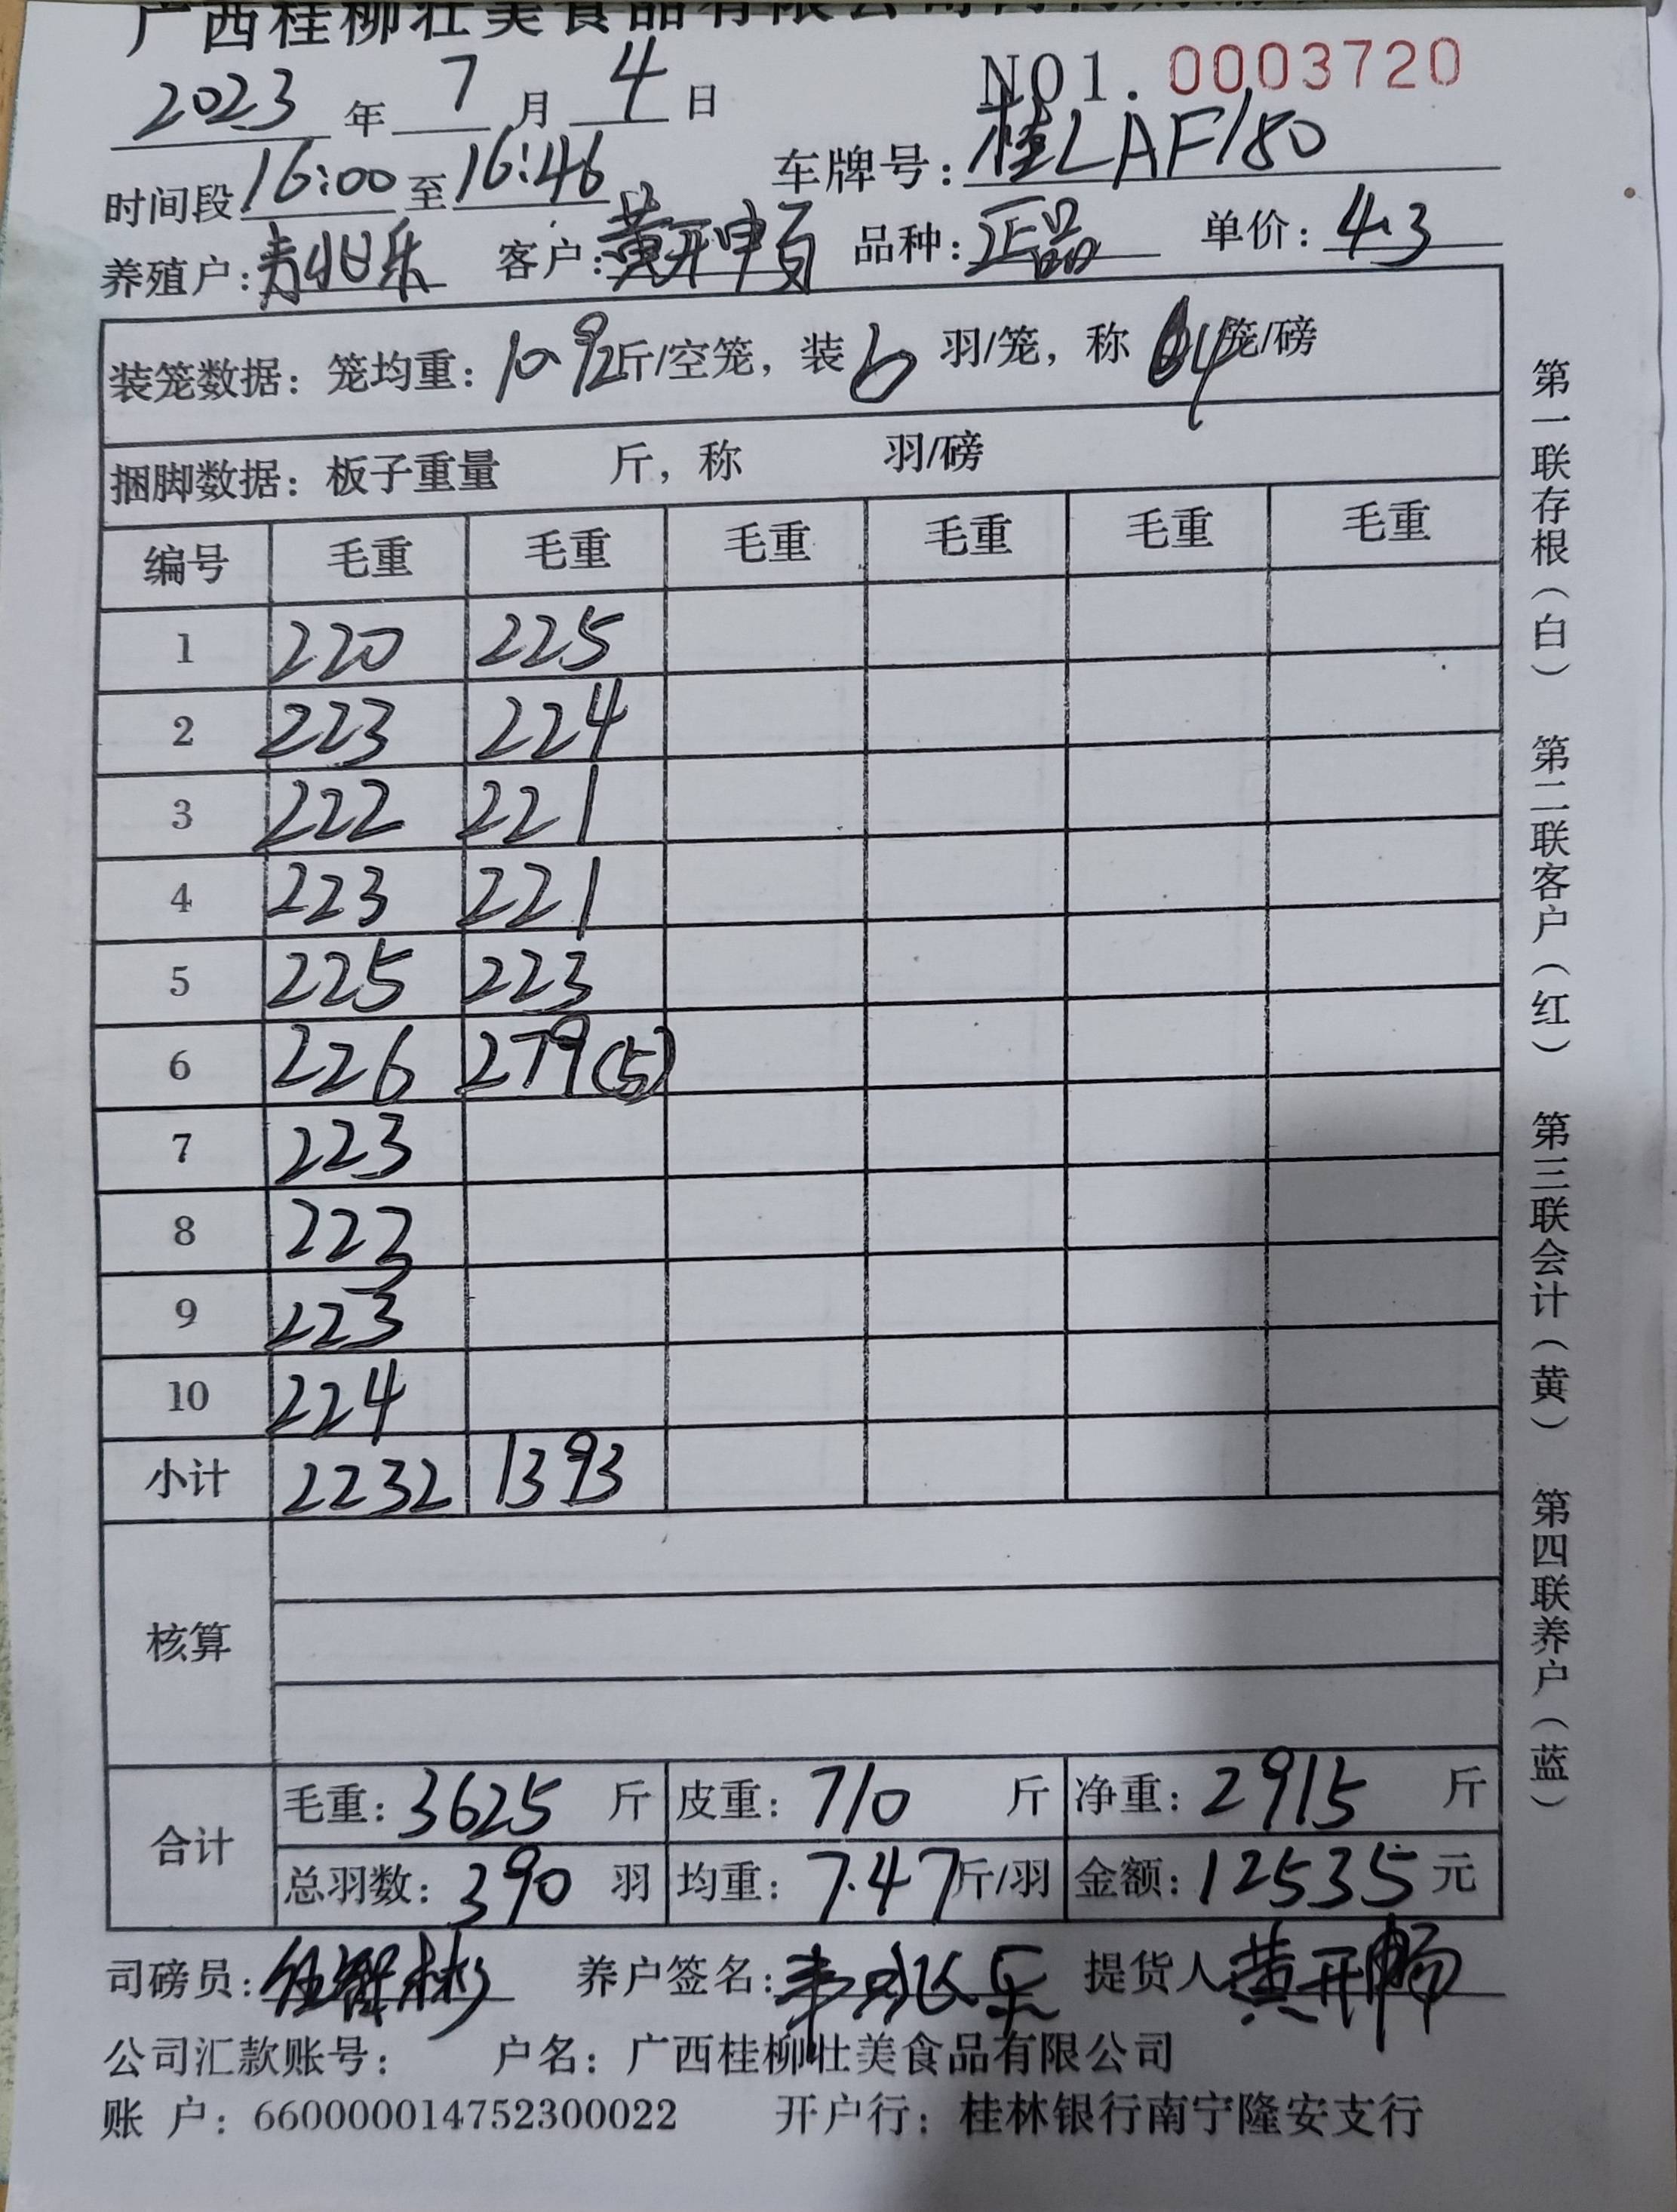 广西桂柳壮美食品有限公司
2023年7月4日 NO1.0003720
时间段16:00至16:46 车牌号:桂LAF180
养殖户: 客户:黄开畅 品种:正品 单价:4.3
装笼数据:笼均重:10.92斤/空笼,装6羽/笼,称4笼/磅
捆脚数据:板子重量 斤,称 羽/磅
编号 毛重 毛重 毛重 毛重 毛重 毛重
1 220 225
2 223 224
3 222 221
4 223 221
5 225 223
6 226 279(5)
7 223
8 223
9 223
10 224
小计 2232 1393
核算
合计
毛重:3625斤 皮重:710斤 净重:2915斤
总羽数:390羽 均重:7.47斤/羽 金额:12535元
司磅员: 养户签名: 提货人黄开畅
公司汇款账号: 户名:广西桂柳壮美食品有限公司
账 户:660000014752300022 开户行:桂林银行南宁隆安支行
第一联存根(白) 第二联客户(红) 第三联会计(黄) 第四联养户(蓝)